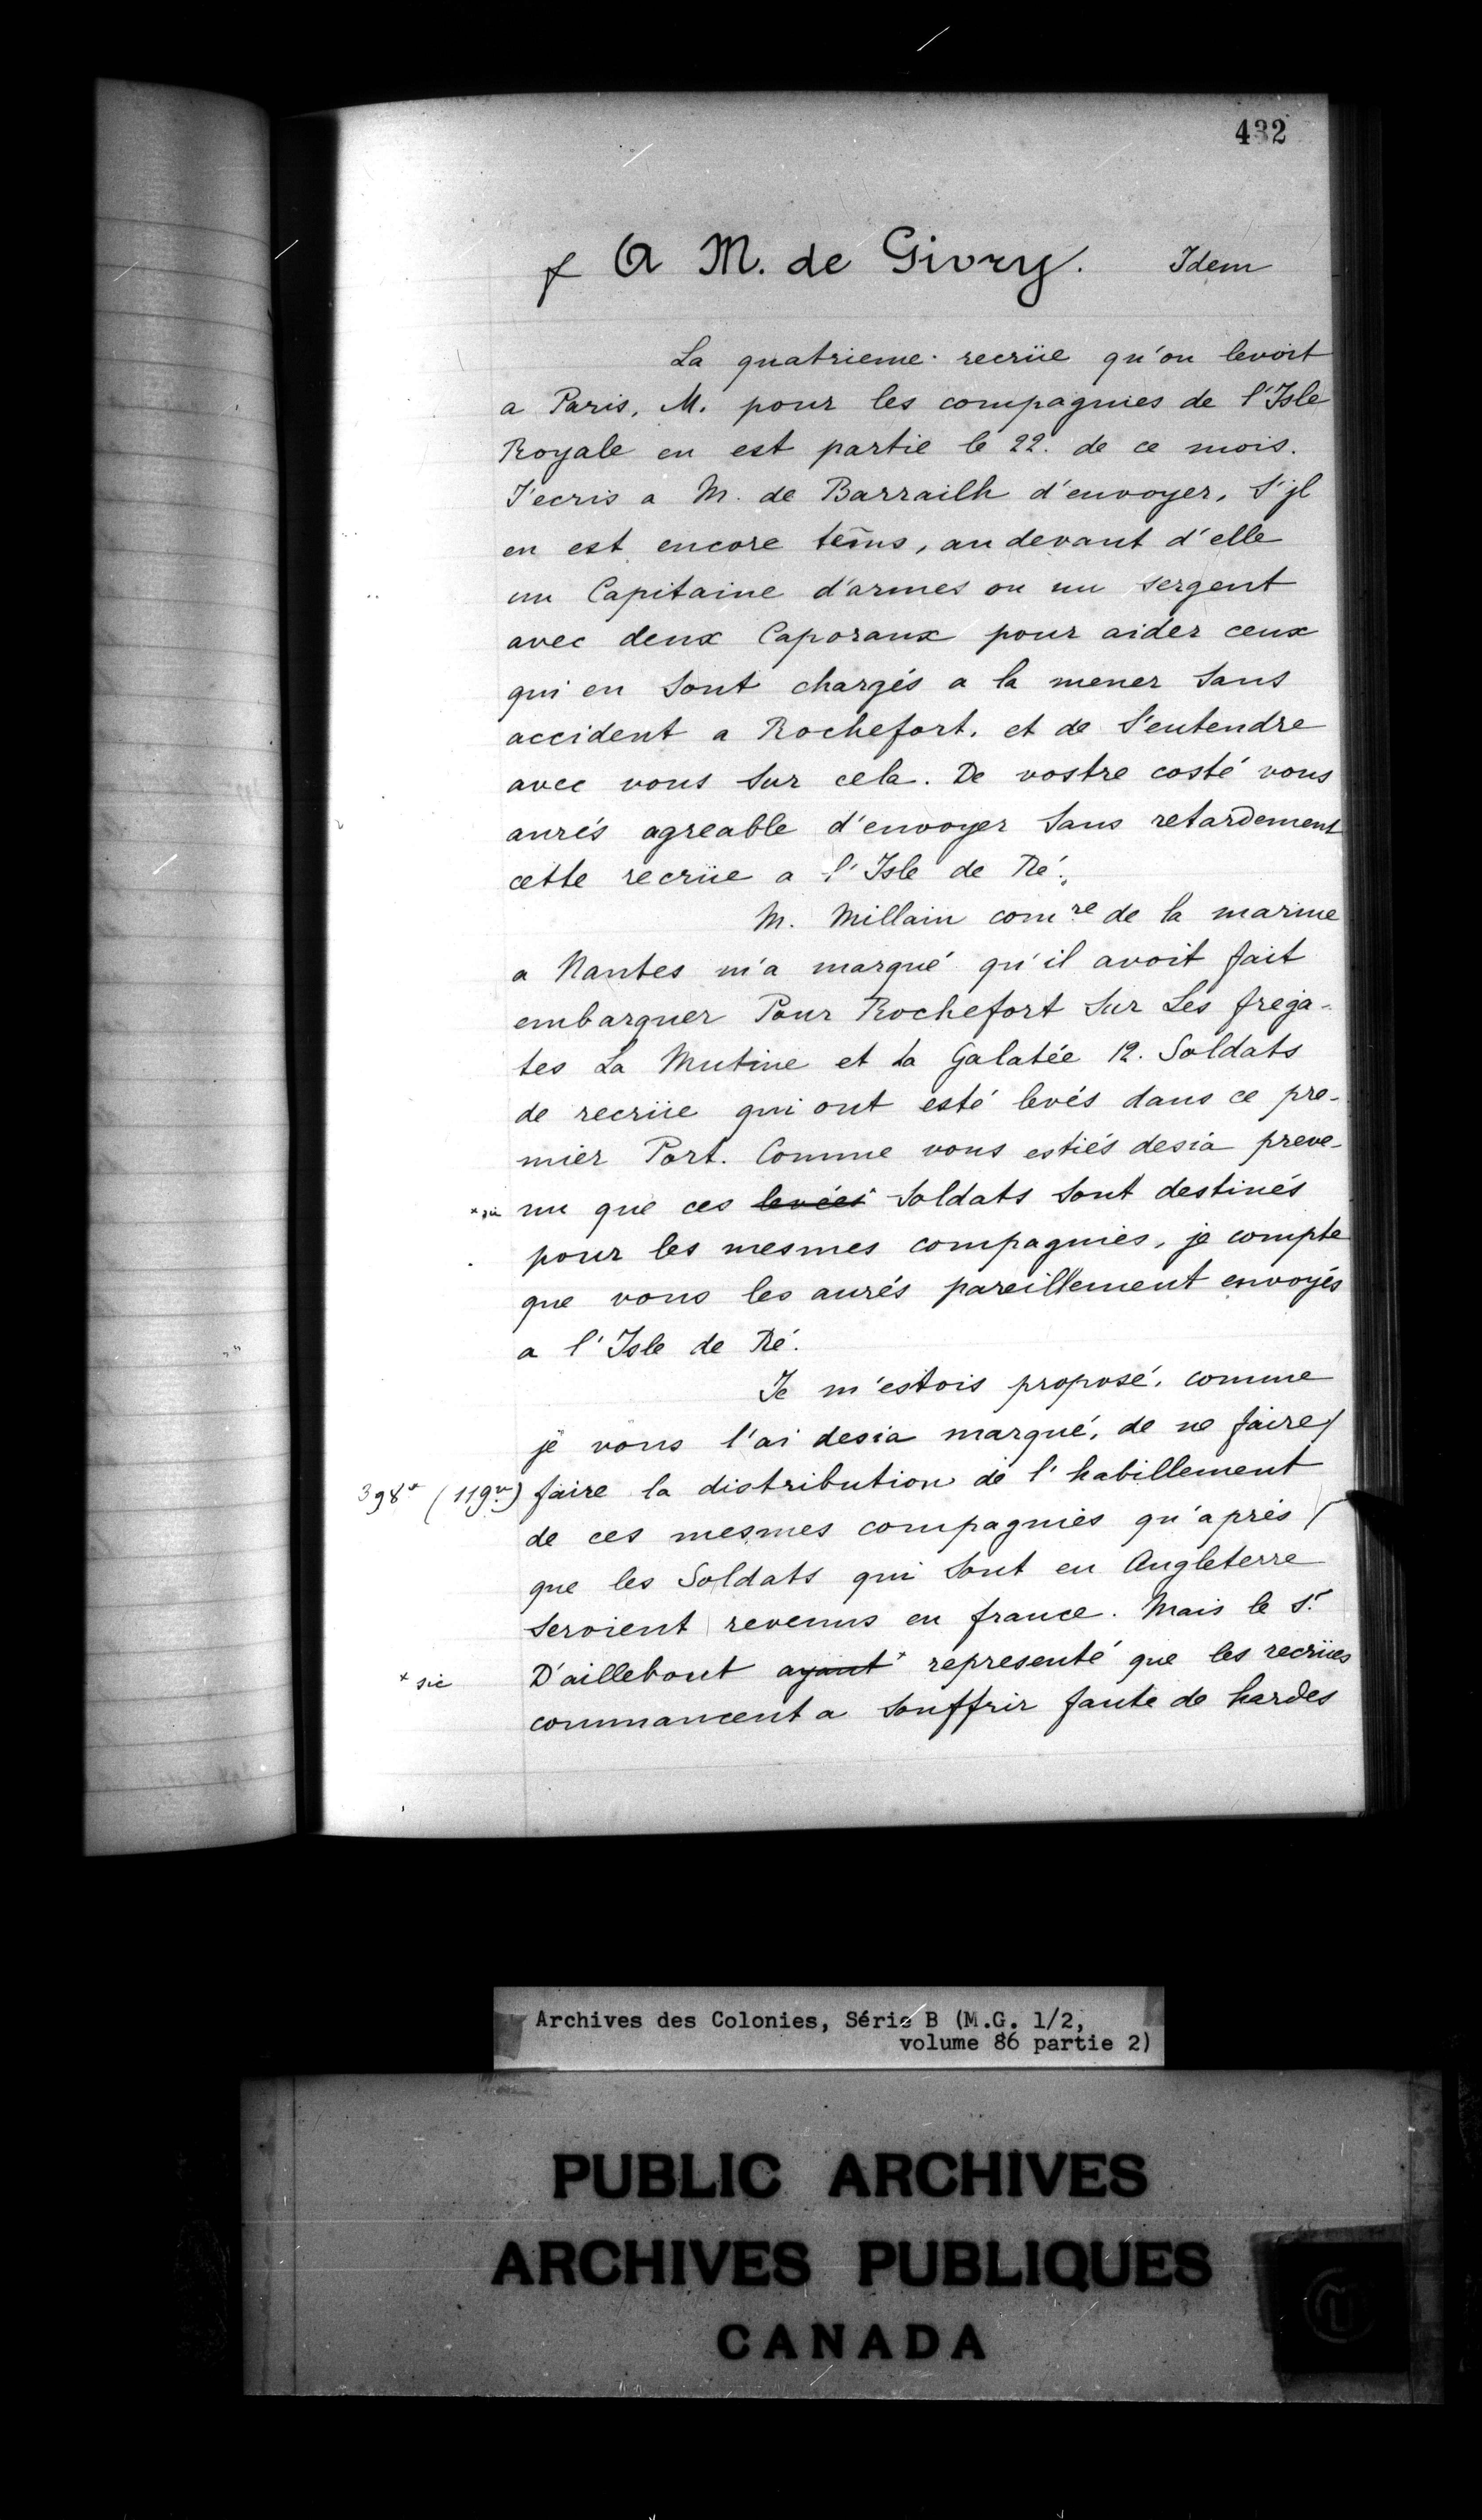 432
A M. de Givry. Idem
La quatrieme recrüe qu'on levoit
a Paris, M. pour les compagnies de l'Isle
Royale en est partie le 22. de ce mois.
J'ecris a M. de Barrailh d'envoyer, S'jl
en est encore tem̃s, au devant d'elle
un Capitaine d'armes ou un sergent
avec deux Caporaux pour aider ceux
qui en Sont chargés a la mener Sans
accident a Rochefort, et de S'entendre
avec vous Sur cela. De vostre costé vous
aurés agreable d'envoyer Sans retardement
cette recrüe a l'Isle de Ré.
M. Millain comre de la marine
a Nantes m'a marqué qu'il avoit fait
embarquer Pour Rochefort Sur Les frega-
tes La Mutine et La Galatée 12. Soldats
de recrüe qui ont esté levés dans ce pre-
mier Port. Comme vous estiés desia preve-
* sic nu que ces levées* Soldats Sont destinés
pour les mesmes compagnies, je compte
que vous les aurés pareillement envoyés
a l'Isle de Ré.
Je m'estois proposé, comme
je vous l'ai desia marqué, de ne faire/
398v (119v) faire la distribution de l'habillement
de ces mesmes compagnies qu'aprés
que les Soldats qui Sont en Angleterre
Seroient revenus en france. Mais le Sr.
* sic D'aillebout ayant* representé que les recrües
commancent a Souffrir faute de hardes
Archives des Colonies, Série B (M.G. 1/2,
volume 86 partie 2)
PUBLIC ARCHIVES
ARCHIVES PUBLIQUES
CANADA